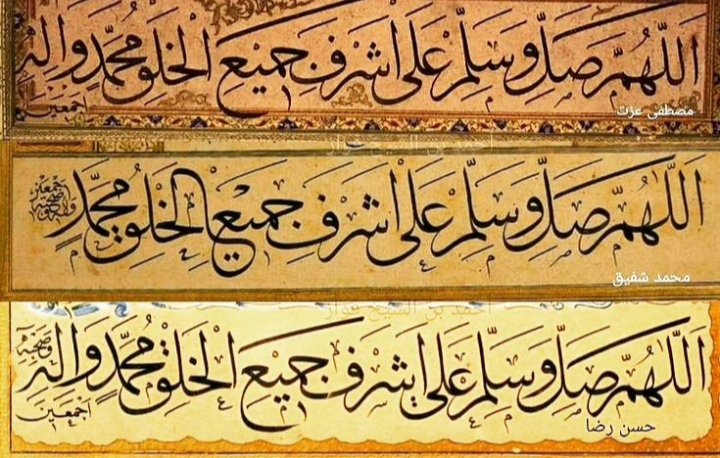 اللهم صل وسلم على اشرف جميع الخلق محمد واله
اجمعين
مصطفى عزت
احمد بن الشيخ فواز
اللهم صل وسلم على اشرف جميع الخلق محمد
واله وصحبه
جمعين
محمد شفيق
احمد بن الشيخ فواز
اللهم صل وسلم على اشرف جميع الخلق محمد واله
وصحبه
اجمعين
حسن رضا